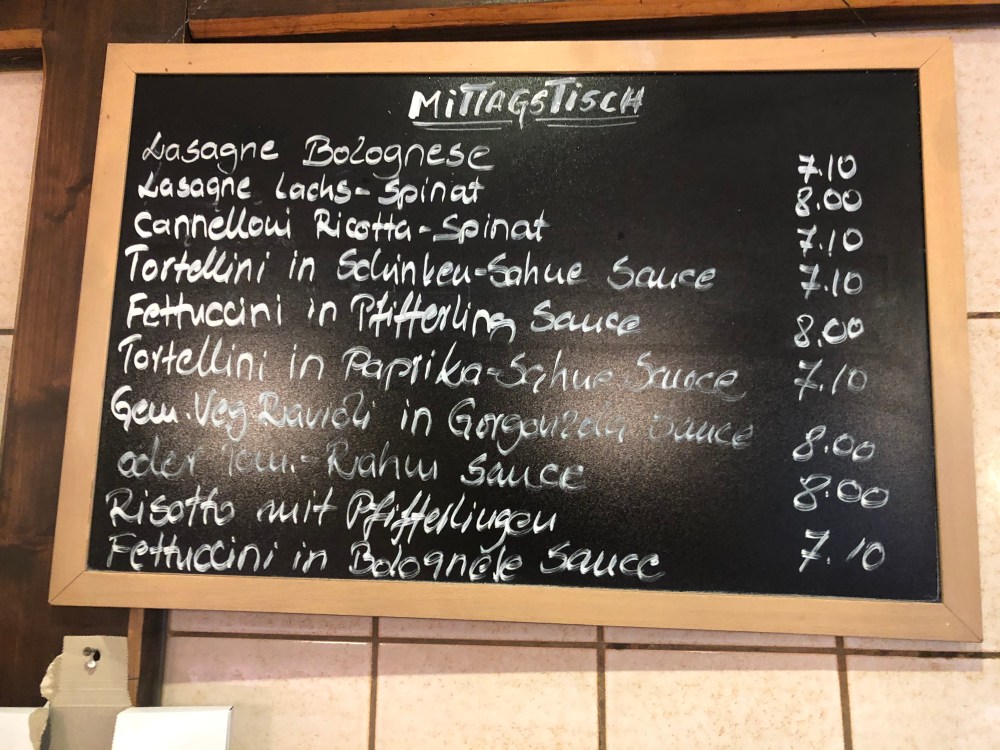 MiTTAGSTiSCH
Lasagne Bolognese 7.10
Lasagne Lachs-Spinat 8.00
Cannelloni Ricotta-Spinat 7.10
Tortellini in Schinken-Sahne Sauce 7.10
Fettuccini in Pfifferling Sauce 8.00
Tortellini in Paprika-Sahne Sauce 7.10
Gem. Veg. Ravioli in Gorgonzola Sauce 8.00
oder Tom.-Rahm Sauce
Risotto mit Pfifferlingen 8.00
Fettuccini in Bolognese Sauce 7.10